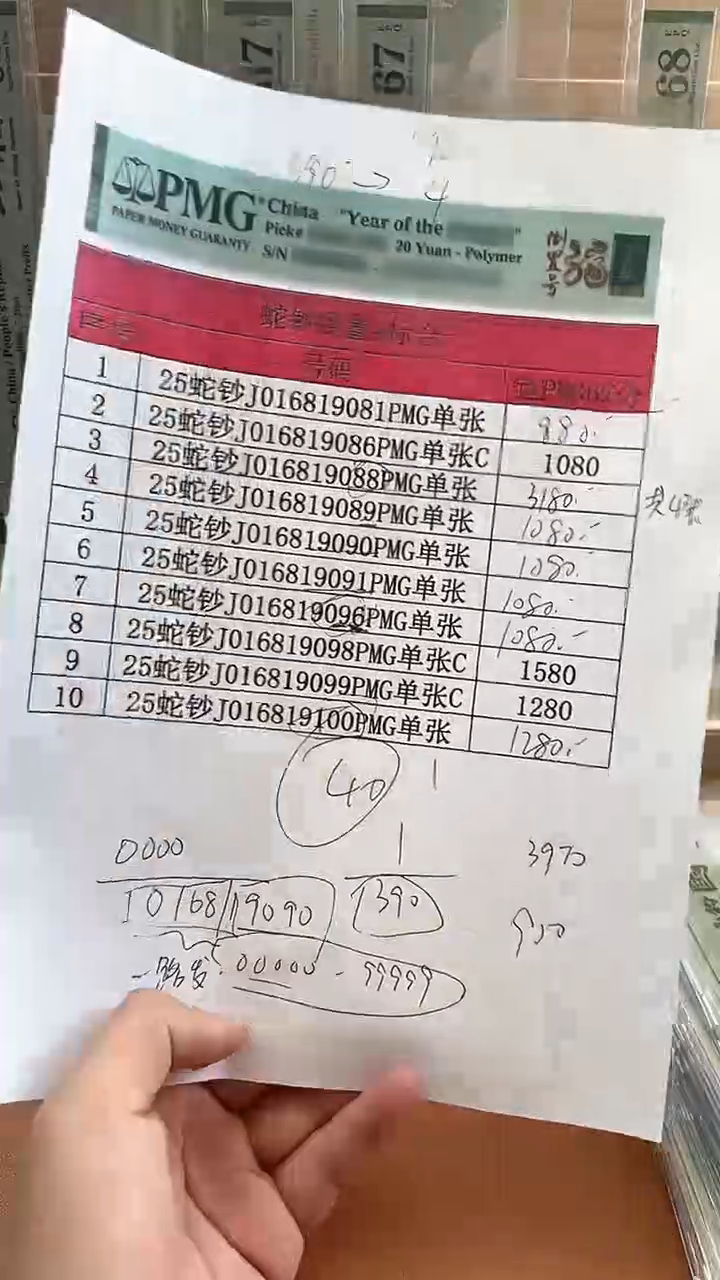 67
68
EPQ
PMG
PAPER MONEY GUARANTY
China "Year of the
Pick#
20 Yuan - Polymer
S/N
倒置号
号码
1 25蛇钞J016819081PMG单张 980.-
2 25蛇钞J016819086PMG单张C 1080
3 25蛇钞J016819088PMG单张 3180.-
共4张
4 25蛇钞J016819089PMG单张 1080.-
5 25蛇钞J016819090PMG单张 1080.-
6 25蛇钞J016819091PMG单张 1080.-
7 25蛇钞J016819096PMG单张 1080.-
8 25蛇钞J016819098PMG单张C 1580
9 25蛇钞J016819099PMG单张C 1280
10 25蛇钞J016819100PMG单张 1280.-
40 1
0000 1
J0168 19090 1390
一路发 00000 - 99999